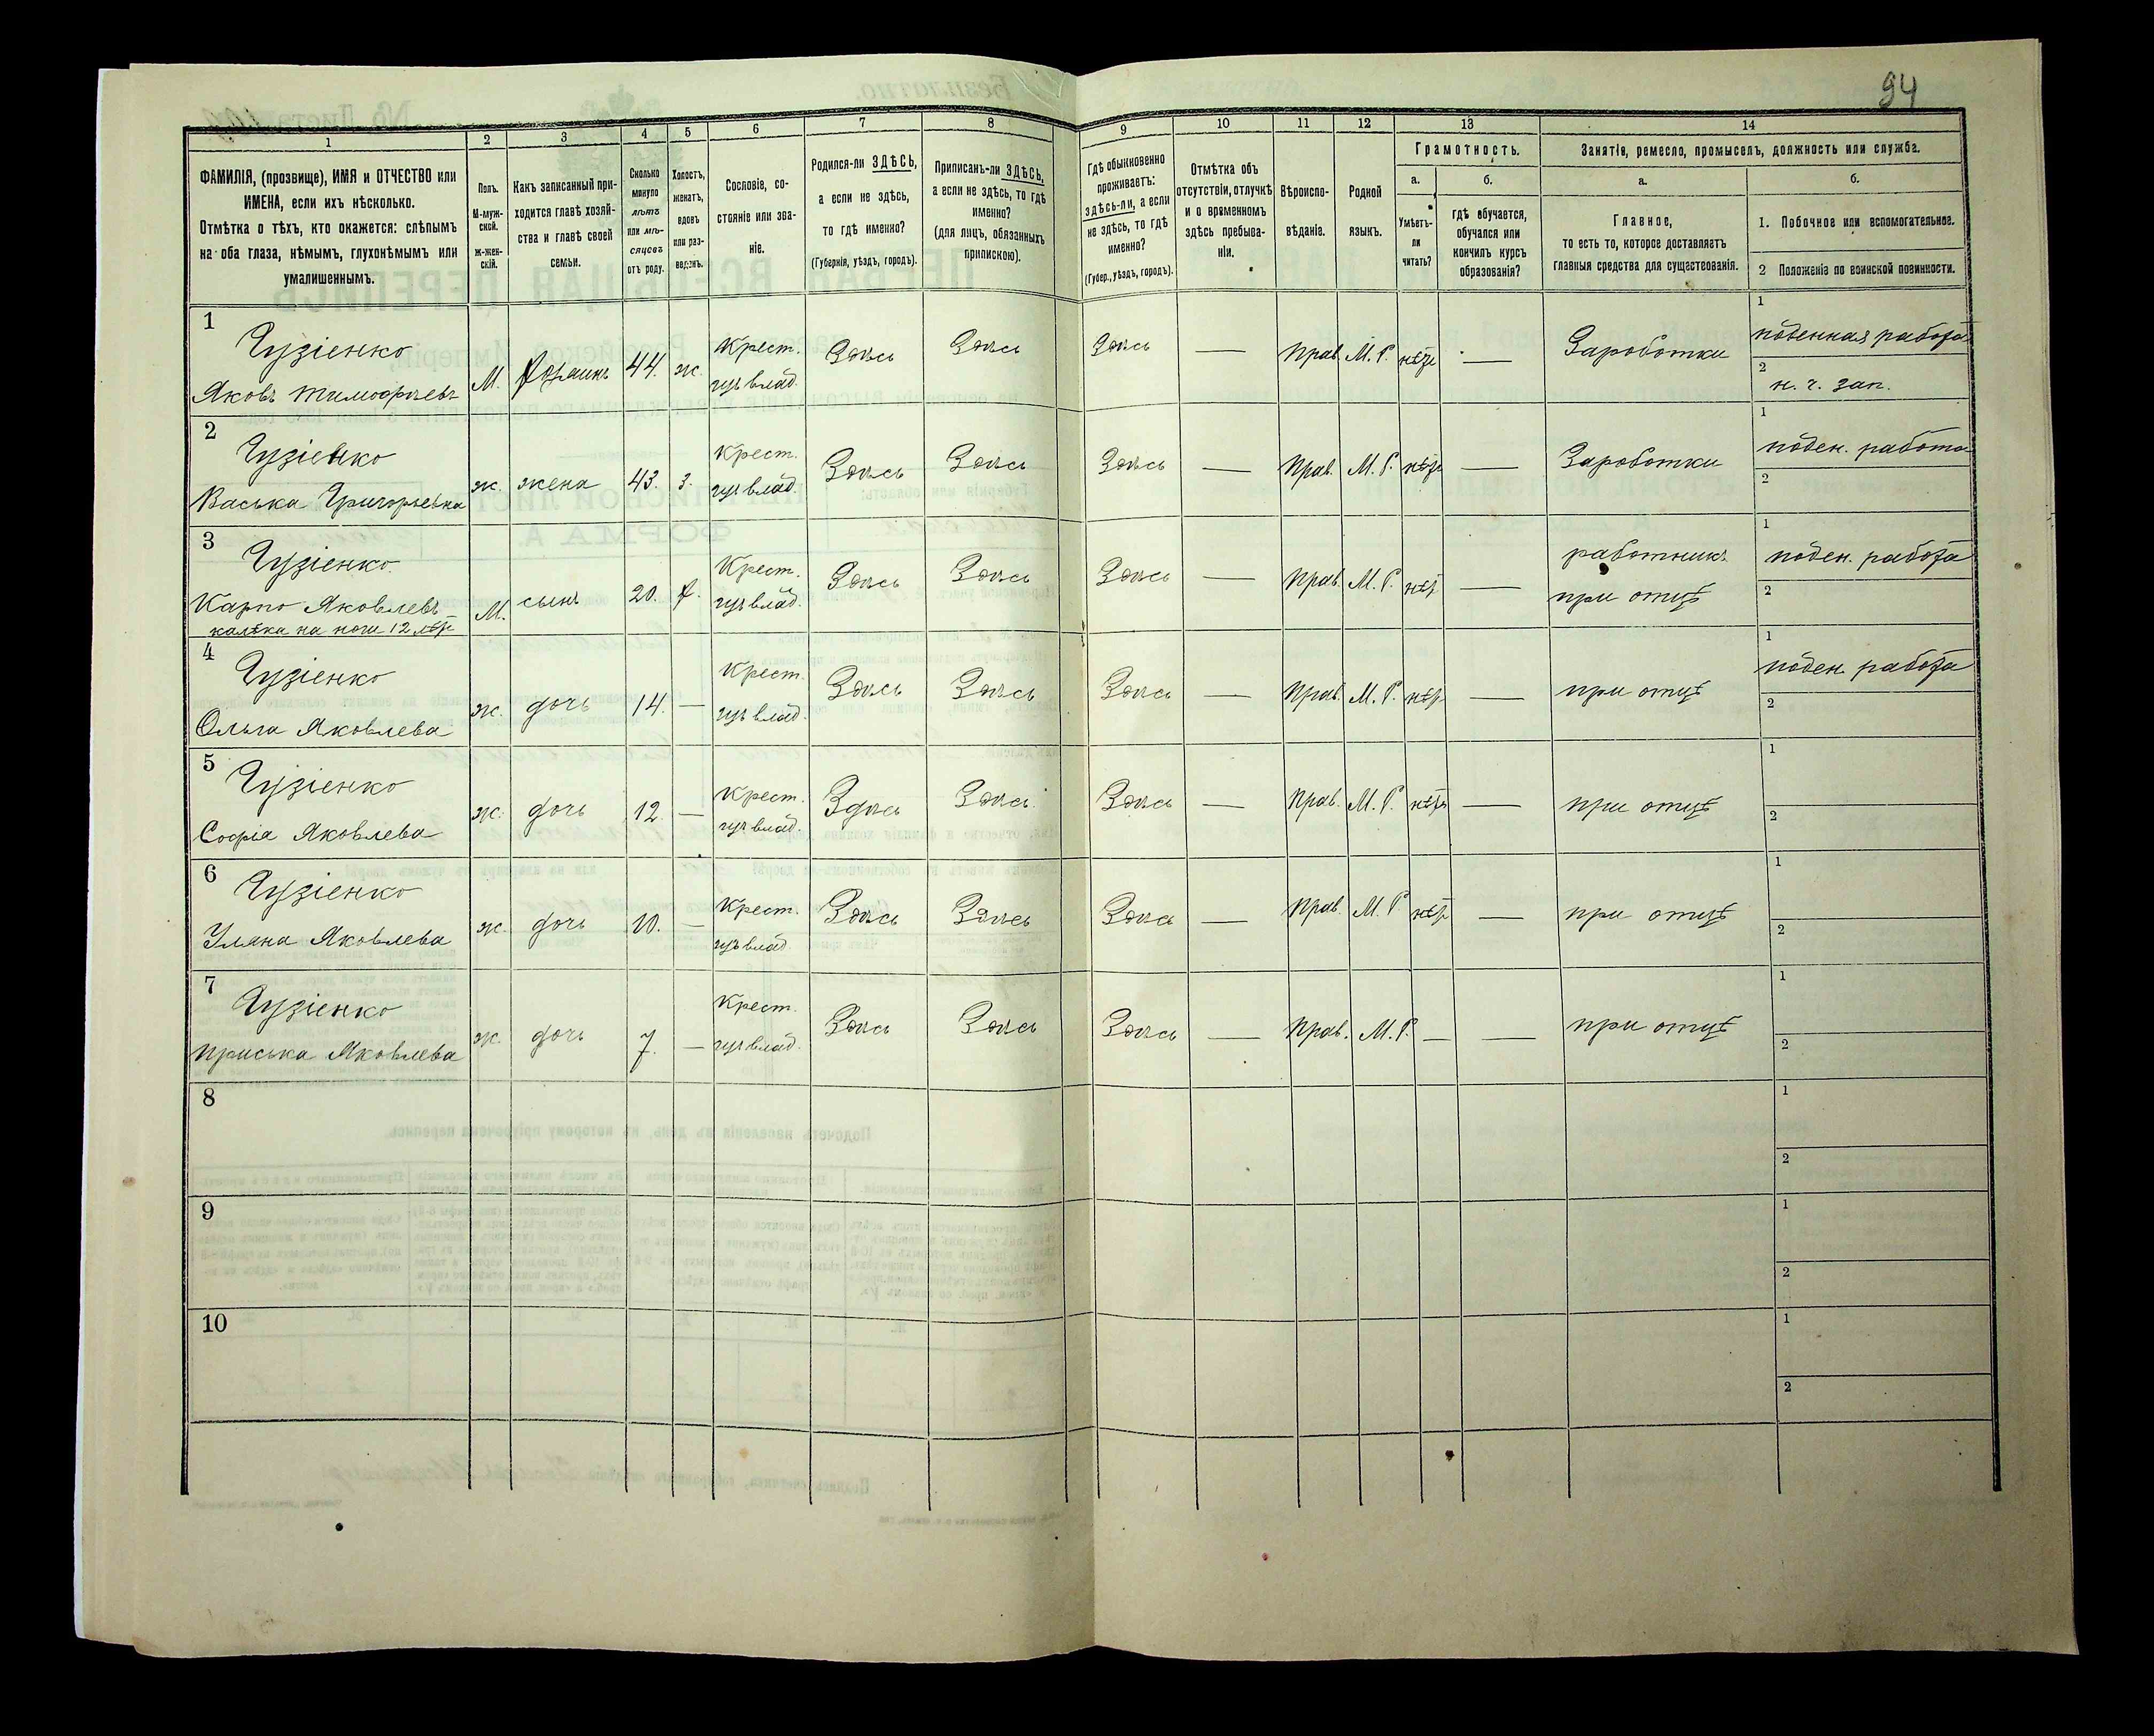 94
1 2 3 4 5 6 7 8 9 10 11 12 13 14
ФАМИЛІЯ, (прозвище), ИМЯ и ОТЧЕСТВО или
ИМЕНА, если ихъ нѣсколько.
Отмѣтка о тѣхъ, кто окажется: слѣпымъ
на оба глаза, нѣмымъ, глухонѣмымъ или
умалишеннымъ.
Полъ.
М-муж-
ской.
Ж-жен-
скій.
Какъ записанный при-
ходится главѣ хозяй-
ства и главѣ своей
семьи.
Сколько
минуло
лѣтъ
или мѣ-
сяцевъ
отъ роду.
Холостъ,
женатъ,
вдовъ
или раз-
веденъ.
Сословіе, со-
стояніе или зва-
ніе.
Родился-ли ЗДѢСЬ,
а если не здѣсь,
то гдѣ именно?
(Губернія, уѣздъ, городъ).
Приписанъ-ли ЗДѢСЬ,
а если не здѣсь, то гдѣ
именно?
(для лицъ, обязанныхъ
припискою).
Гдѣ обыкновенно
проживаетъ:
здѣсь-ли, а если
не здѣсь, то гдѣ
именно?
(Губер., уѣздъ, городъ).
Отмѣтка объ
отсутствіи, отлучкѣ
и о временномъ
здѣсь пребыва-
ніи.
Вѣроиспо-
вѣданіе.
Родной
языкъ.
Грамотность.
а.
Умѣетъ-
ли
читать?
б.
Гдѣ обучается,
обучался или
кончилъ курсъ
образованія?
Занятіе, ремесло, промыселъ, должность или служба.
а.
Главное,
то есть то, которое доставляетъ
главныя средства для существованія.
б.
1. Побочное или вспомогательное.
2 Положеніе по воинской повинности.
1 Чузіенко Крест. Здѣсь Здѣсь Здѣсь — Прав. М. Р. нѣтъ — Зароботки 1 поденная работа
Яковъ Тимофѣевъ М. хозяинъ 44. ж. влад. 2 н. ч. зап.
2 Чузіенко Крест. Здѣсь Здѣсь Здѣсь — Прав. М. Р. нѣтъ — Зароботки 1 поден. работа
Васька Григорьевна ж. жена 43. З. влад. 2
3 Чузіенко Крест. Здѣсь Здѣсь Здѣсь — Прав. М. Р. нѣтъ — работникъ 1 поден. работа
Карпо Яковлевъ М. сынъ 20. Х. влад. при отцѣ 2
калѣка на ноги 12 лѣтъ
4 Чузіенко Крест. Здѣсь Здѣсь Здѣсь — Прав. М. Р. нѣтъ — при отцѣ 1 поден. работа
Ольга Яковлева ж. дочь 14. — влад. 2
5 Чузіенко Крест. Здѣсь Здѣсь Здѣсь — Прав. М. Р. нѣтъ — при отцѣ 1
Софья Яковлева ж. дочь 12. — влад. 2
6 Чузіенко Крест. Здѣсь Здѣсь Здѣсь — Прав. М. Р. нѣтъ — при отцѣ 1
Уляна Яковлева ж. дочь 10. — влад. 2
7 Чузіенко Крест. Здѣсь Здѣсь Здѣсь — Прав. М. Р. — — при отцѣ 1
Приська Яковлева ж. дочь 7. — влад. 2
8 1
2
9 1
2
10 1
2